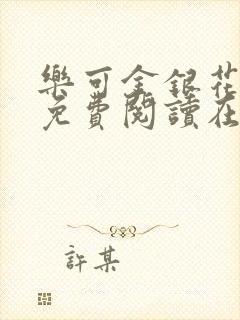 樂可金銀花
免費閱讀在
許某